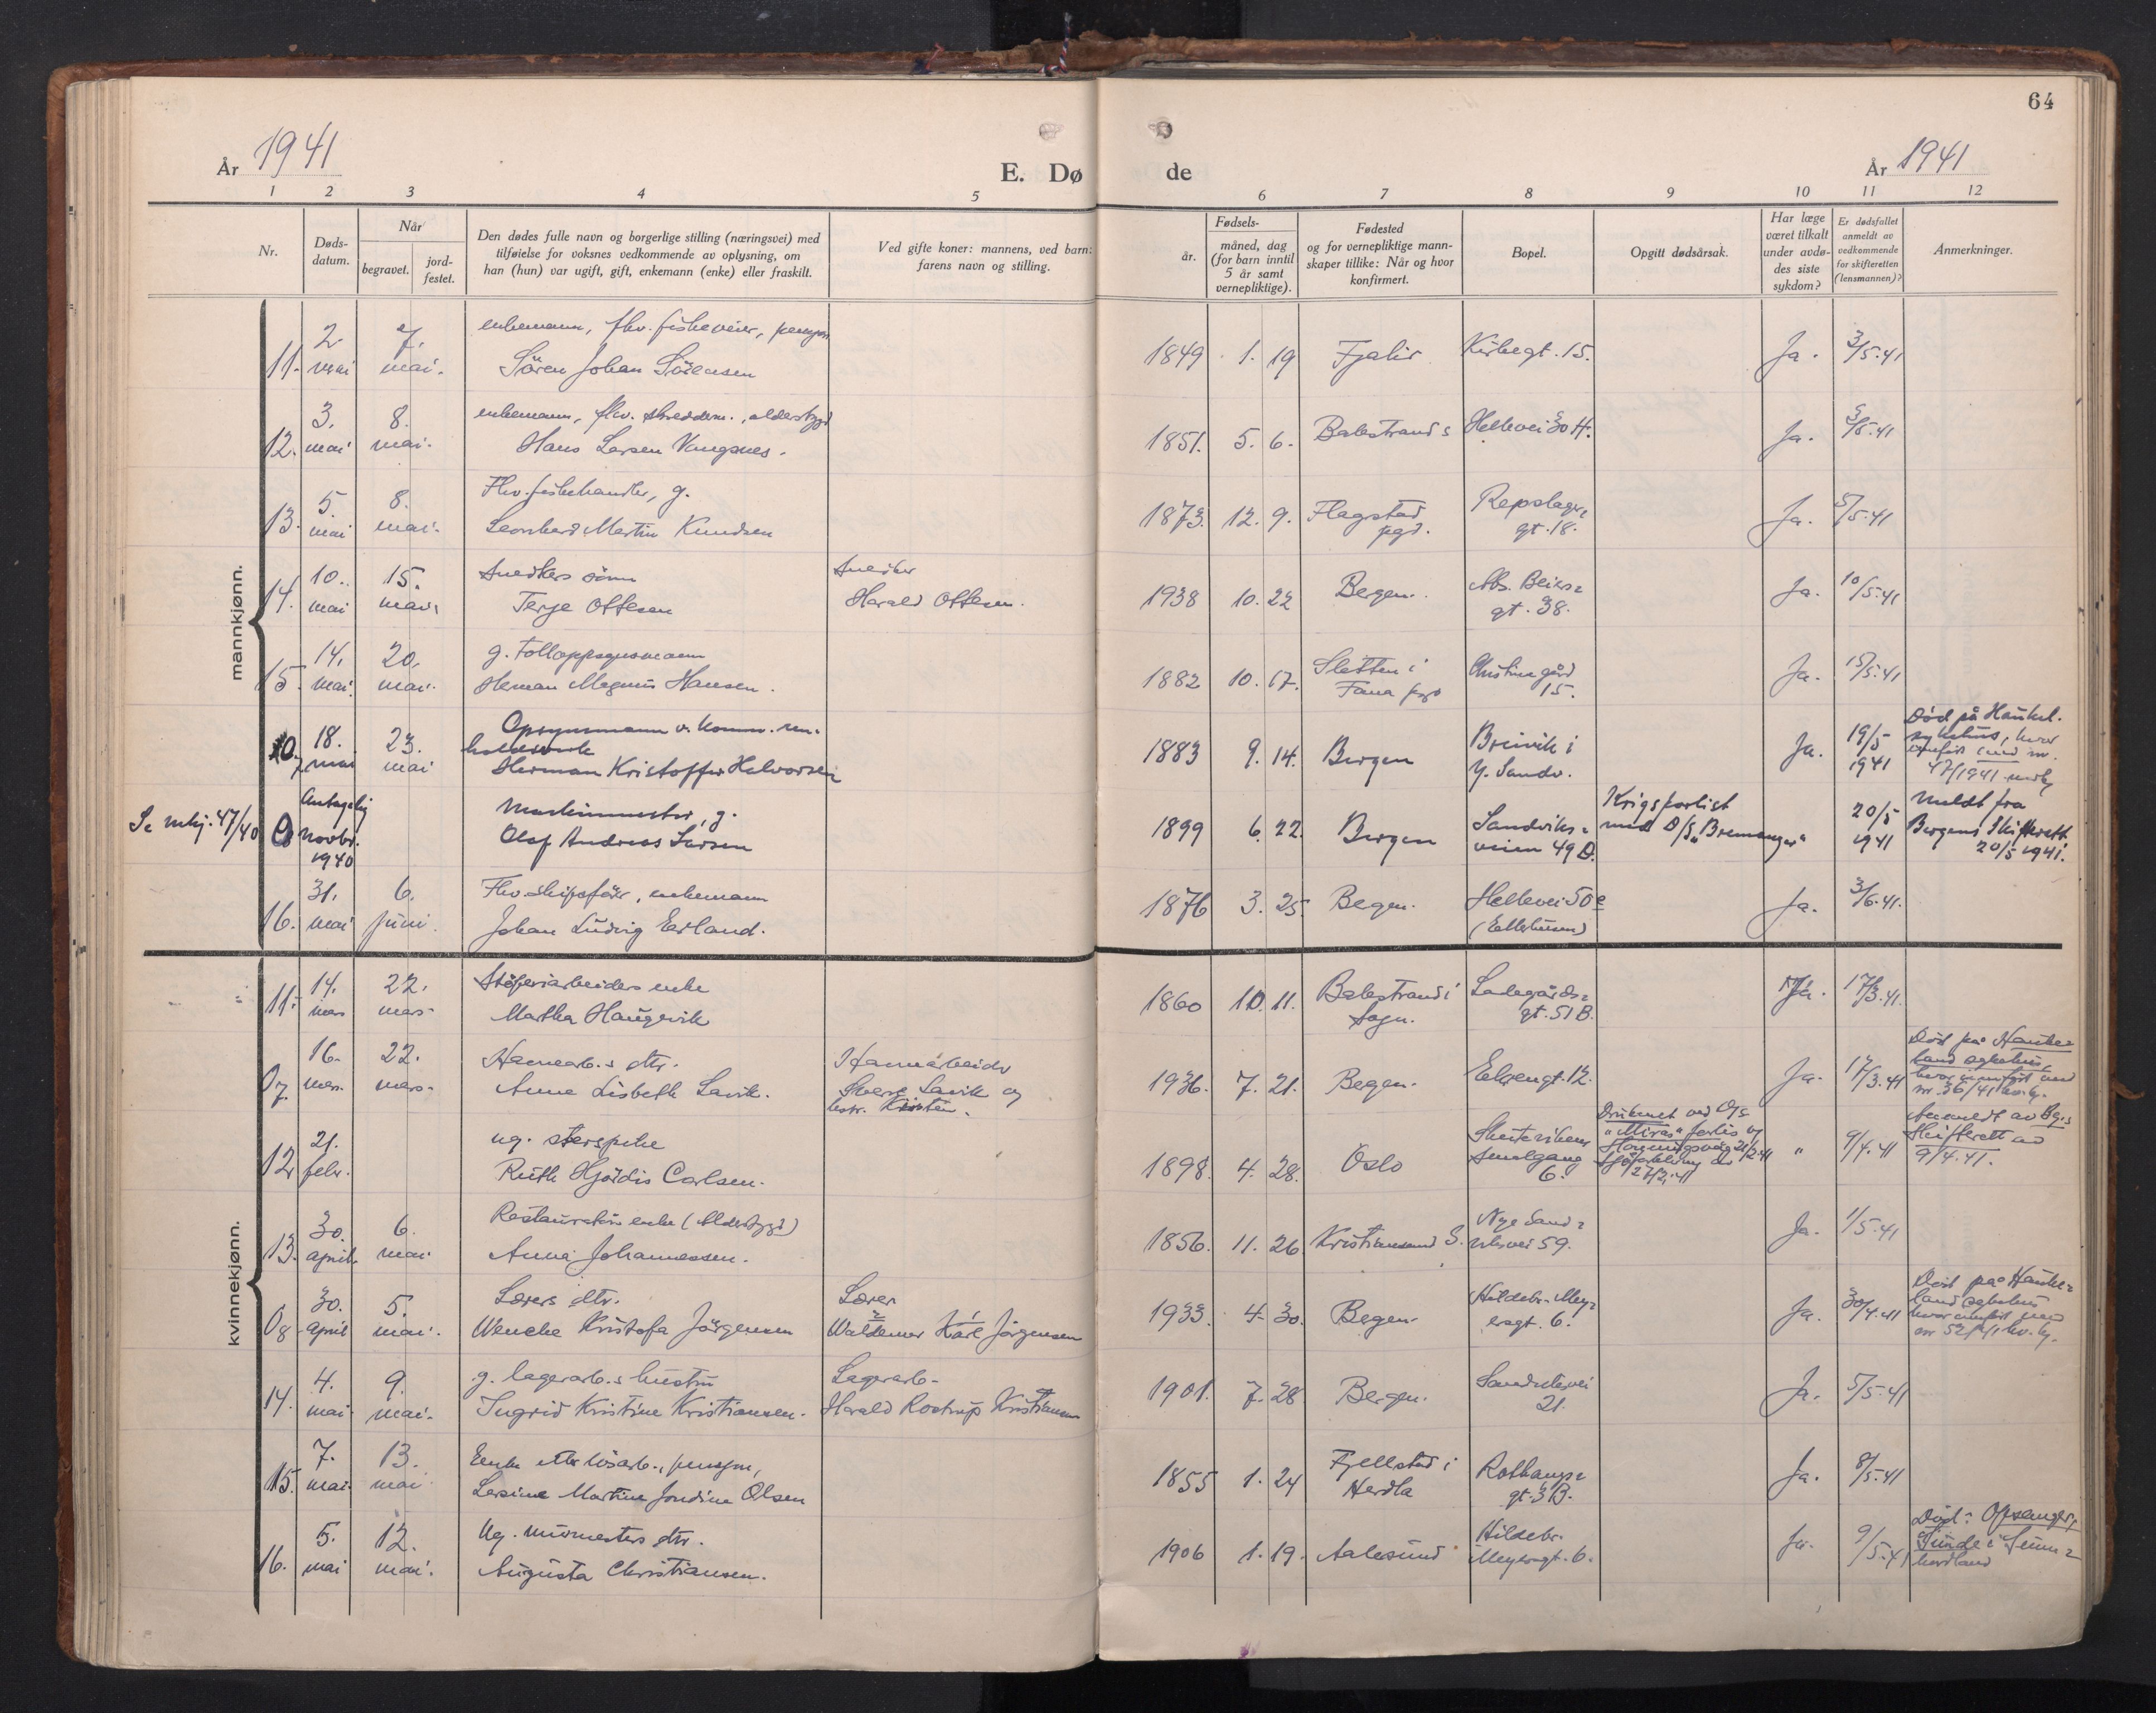 64
År 1941
E. Dø
de
År 1941
1 2 3 4 5
6 7 8 9 10 11 12
Nr.
Døds-
datum.
Når
begravet.
jord-
festet.
Den dødes fulle navn og borgerlige stilling (næringsvei) med
tilføielse for voksnes vedkommende av oplysning, om
han (hun) var ugift, gift, enkemann (enke) eller fraskilt.
Ved gifte koner: mannens, ved barn:
farens navn og stilling.
Fødsels-
år.
måned, dag
(for barn inntil
5 år samt
vernepliktige).
Fødested
og for vernepliktige mann-
skaper tillike: Når og hvor
konfirmert.
Bopel.
Opgitt dødsårsak.
Har læge
været tilkalt
under avdø-
des siste
sykdom?
Er dødsfallet
anmeldt av
vedkommende
for skifteretten
(lensmannen)?
Anmerkninger.
mannkjønn.
2 7. enkemann, fhv. fiskeveier,
11. mai mai. Sören Johan Sörensen 1849 1. 19 Fjaler Kirkegt. 15. Ja. 3/5.41
3. 8. enkemann, fhv. skredderm., alderstygd
12. mai mai. Hans Larsen Vangsnes. 1851. 5. 6. Balestrand Hellevei 30 Ja. 3/5.41
5. 8. Fhv. fiskehandler, g.
13. mai mai. Leonhard Martin Knudsen 1873. 12. 9. Flagstad pgd. Repslager- gt. 18. Ja. 5/5.41
10. 15. Snedkers sönn Snedker
14. mai mai. Terje Ottesen Harald Ottesen. 1938 10. 22 Bergen. Abs. Beiers- gt. 38. Ja. 10/5.41
14. 20. g. Tolloppsynsmann
15. mai. mai. Herman Magnus Hansen. 1882 10. 17. Sletten i Fana Christinegård 15. Ja. 15/5.41
18. 23. Opsynsmann v. komm. ren-
holdsverk
mai mai Herman Kristoffer Halvorsen 1883 9. 14. Bergen Breivik i Y. Sandv. Ja. 19/5 1941
Død på Haukel.
sykehus, hvor
innført med nr.
47/1941
Se mkj. 47/40 Antagelig
Novbr.
1940
Maskinmester, g.
Olaf Andreas Larsen 1899 6. 22. Bergen Sandviks-
veien 49 D. Krigsforlist
med D/S "Bremanger" 20/5
1941
Meldt fra
Bergens Skifterett
20/5 1941.
31. 6. Fhv. skipsförer, enkemann
16. mai juni. Johan Ludvig Erland. 1876 3. 25 Bergen. Hellevei 50 Ja. 3/6.41.
kvinnekjønn.
14. 22. Stöperiarbeiders enke
11. mars mars. Martha Haugsvik 1860 10. 11. Balestrand i Sogn. Ladegårds- gt. 51 B. Ja. 17/3.41.
16. 22. Havnearb.s dtr. Havnearbeider
07. mars. mars. Anne Lisbeth Lavik. Sverre Lavik og
hstr. Kirsten. 1936. 7. 21. Bergen. Ekrengt. 12. Ja. 17/3.41
Död på Hauke-
land sykehus,
hvor innført med
nr. 36/41 kv.kj.
21. ug.
12. febr. Ruth Hjördis Carlsen. 1898. 4. 28. Oslo Skuteviken
Smalgang
6. Druknet ved D/S
"Mira"s forlis
" 9/4.41 Anmeldt av Bg.s
Skifterett av
9/4.41.
30. 6. Restauratörs enke (Alderstygd)
13. april mai Anna Johannessen. 1856. 11. 26. Kristiansand S. Nye Sand-
viksvei 59. Ja. 1/5.41
30. 5. Lærers dtr. Lærer
08 april mai. Wenche Kristofa Jörgensen Waldemar Karl Jörgensen 1933. 4. 30. Bergen. Hildebr. Mey-
ersgt. 6. Ja. 30/4.41
Död på Hauke-
land sykehus
hvor innført med
nr 52/41 kv.kj.
4. 9. g. lagerarb.s hustru Lagerarb.
14. mai. mai. Ingrid Kristine Kristiansen. Harald Rostrup Kristiansen 1901. 7. 28. Bergen. Sandviksvei 21. Ja. 5/5.41
7. 13. Enke etter lösarb.,
15. mai. mai Lasine Martine Jondine Olsen 1855 1. 24 Fjellstad i Herdla Rothaugs- gt. 3 B. Ja. 8/5.41
5. 12. Ug. murmesters dtr.
16. mai mai. Augusta Christiansen. 1906 1. 19. Aalesund Hildebr.
Meyersgt. 6. Ja. 9/5.41
Död: Opsanger,
Sunde i Sunn-
hordland